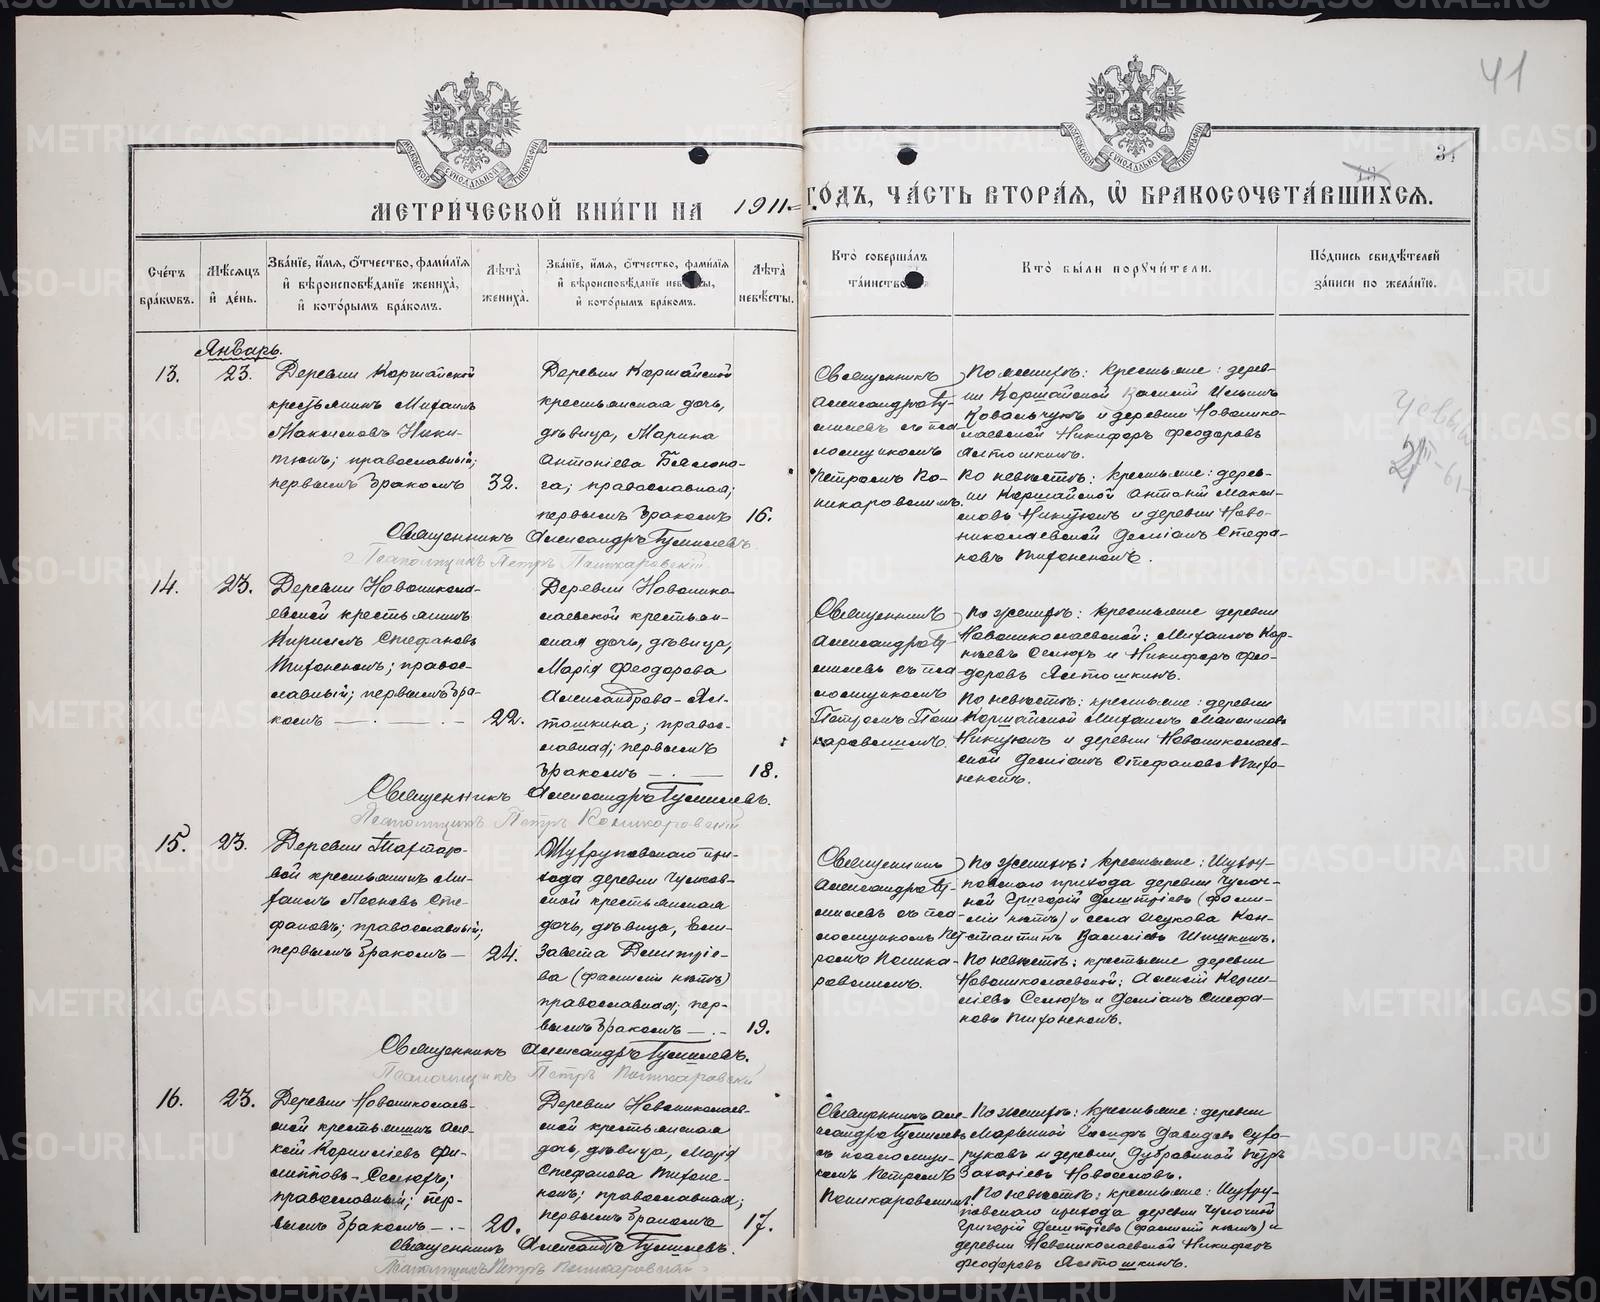 41
31
МЕТРИ́ЧЕСКОЙ КНИ́ГИ НА 1911 ГО́ДЪ, ЧА́СТЬ ВТОРА́Я, Ѽ БРАКОСОЧЕТА́ВШИХСЯ.
Сче́тъ бра́ковъ.
Мѣ́сяцъ и҆ де́нь.
Зва́нїе, и҆́мя, ѻ҆́тчество, фами́лїя и҆ вѣроисповѣ́данїе жениха̀, и҆ кото́рымъ бра́комъ.
Лѣ̑та̀ жениха̀.
Зва́нїе, и҆́мя, ѻ҆́тчество, фами́лїя и҆ вѣроисповѣ́данїе невѣ́сты, и҆ кото́рымъ бра́комъ.
Лѣ̑та̀ невѣ́сты.
Кто̀ соверша́лъ та́инство.
Кто̀ бы́ли порꙋчи́тели.
По́дпись свидѣ́телей за́писи по жела́нїю.
Январь.
13.
23.
Деревни Коршайской
крестьянинъ Михаилъ
Максимовъ Ники-
тюкъ; православный;
первымъ бракомъ
32.
Деревни Коршайской
крестьянская дочь,
дѣвица, Марина
Антоніева Бѣлоно-
га; православная;
первымъ бракомъ
16.
Священникъ
Александръ Гу-
милевъ съ пса-
ломщикомъ
Петромъ По-
никаровскимъ.
По женихѣ: крестьяне: дерев-
ни Коршайской Василій Ильинъ
Ковальчукъ и деревни Новонико-
лаевской Никифоръ Феодоровъ
Алтошкинъ.
По невѣстѣ: крестьяне: дерев-
ни Коршайской Антоній Макси-
мовъ Никитюкъ и деревни Ново-
николаевской Деміанъ Стефа-
новъ Тихоненокъ.
Священникъ Александръ Гумилевъ
Псаломщикъ Петръ Поникаровскій
14.
23.
Деревни Новоникола-
евской крестьянинъ
Кириллъ Стефановъ
Тихоненокъ; право-
славный; первымъ бра-
комъ
22.
Деревни Новонико-
лаевской крестьян-
ская дочь, дѣвица,
Марія Феодорова
Александрова-Ал-
тошкина; право-
славная; первымъ
бракомъ
18.
Священникъ
Александръ Гу-
милевъ съ пса-
ломщикомъ
Петромъ Пони-
каровскимъ.
По женихѣ: крестьяне деревни
Новониколаевской: Михаилъ Кор-
нѣевъ Селюкъ и Никифоръ Фео-
доровъ Алтошкинъ.
По невѣстѣ: крестьяне: деревни
Коршайской Михаилъ Максимовъ
Никитюкъ и деревни Новониколаев-
ской Деміанъ Стефановъ Тихо-
ненокъ.
Священникъ Александръ Гумилевъ.
Псаломщикъ Петръ Поникаровскій
15.
23.
Деревни
крестьянинъ Ми-
хаилъ Леоновъ Сте-
фановъ; православный;
первымъ бракомъ
24.
прихода деревни
крестьянская
дочь, дѣвица, Ели-
завета Димитріе-
ва (фамиліи нѣтъ)
православная; пер-
вымъ бракомъ
19.
Священникъ
Александръ Гу-
милевъ съ пса-
ломщикомъ Пет-
ромъ Поника-
ровскимъ.
По женихѣ: крестьяне:
прихода деревни
Григорій Димитріевъ (фами-
ліи нѣтъ) и села Кон-
стантинъ Василіевъ Шишкинъ.
По невѣстѣ: крестьяне деревни
Новониколаевской: Алексій Корни-
ліевъ Селюкъ и Деміанъ Стефа-
новъ Тихоненокъ.
Священникъ Александръ Гумилевъ.
Псаломщикъ Петръ Поникаровскій
16.
23.
Деревни Новониколаев-
ской крестьянинъ Але-
ксій Корниліевъ Фи-
липповъ-Селюкъ;
православный; пер-
вымъ бракомъ
20.
Деревни Новониколаев-
ской крестьянская
дочь, дѣвица, Марія
Стефанова Тихоне-
нокъ; православная;
первымъ бракомъ
17.
Священникъ Але-
ксандръ Гумилевъ
съ псаломщи-
комъ Петромъ
Поникаровскимъ
По женихѣ: крестьяне: деревни
Іосифъ Давидовъ
и деревни Дубровиной Петръ
Захаріевъ Новоселовъ.
По невѣстѣ: крестьяне:
прихода деревни
Григорій Димитріевъ (фамиліи нѣтъ) и
деревни Новониколаевской Никифоръ
Феодоровъ Алтошкинъ.
Священникъ Александръ Гумилевъ.
Псаломщикъ Петръ Поникаровскій
METRIKI.GASO-URAL.RU